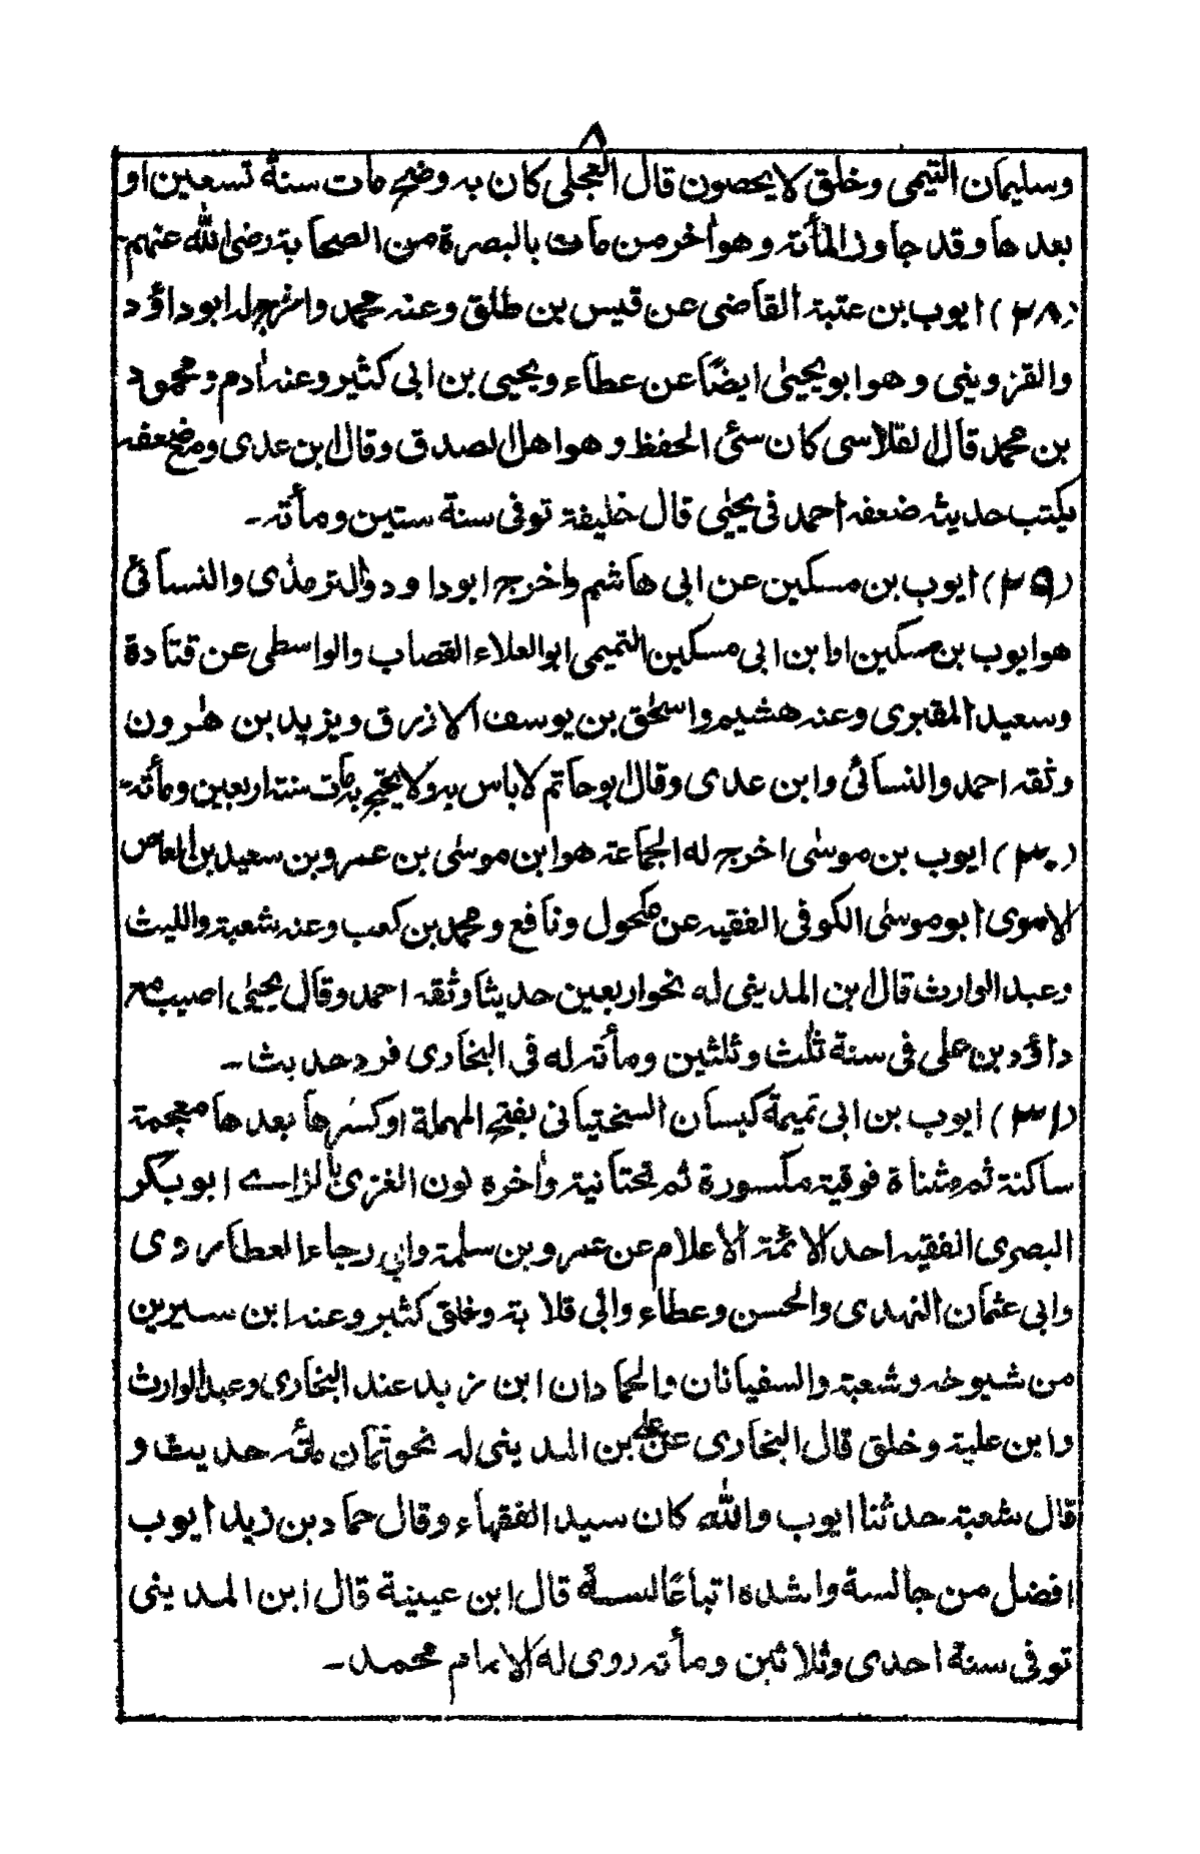 ٨
وسليمان التيمى وخلق لا يحصون قال العجلى كان به وضح مات سنة تسعين او
بعدها وقد جاوز المأته وهو اٰخر من مات بالبصرة من الصحابة رضى الله عنهم
(٢٨) ايوب بن عتبة القاضى عن قيس بن طلق وعنه محمد واخرج له ابوداؤد
والقزوينى وهو ابو يحيىٰ ايضًا عن عطاء ويحيى بن ابى كثير وعنه اٰدم ومحمود
بن محمد قال لفلاسى كان سئ الحفظ وهو اهل الصدق وقال ابن عدى ومع ضعفه
يكتب حديثه ضعفه احمد فى يحيٰى قال خليفة توفى سنة ستين ومأته ۔
(٢٩) ايوب بن مسكين عن ابى هاشم واخرجه ابوداود والترمذى والنسائى
هو ايوب بن مسكين او ابن ابى مسكين التميمى ابو العلاء القصاب والواسطى عن قتادة
وسعيد المقبرى وعنه هشيم واسحٰق بن يوسف الازرق ويزيد بن هٰرون
وثقه احمد والنسائى وابن عدى وقال ابوحاتم لا باس به ولا يحتج به مات سنة اربعين ومأته
(٣٠) ايوب بن موسىٰ اخرج له الجماعة هو ابن موسىٰ بن عمرو بن سعيد بن العاص
الاموى ابو موسىٰ الكوفى الفقيه عن مكحول ونافع ومحمد بن كعب وعنه شعبة والليث
وعبد الوارث قال ابن المدينى له نحو اربعين حديثا وثقه احمد وقال يحيىٰ اصيب مع
داؤد بن على فى سنة ثلٰث وثلثين ومأته له فى البخارى فرد حديث ۔
(٣١) ايوب بن ابى تميمة كيسان السختيانى بفتح المهملة او كسرها بعدها معجمة
ساكنة ثم مثناة فوقية مكسورة ثم تحتانية واٰخره نون الغزى بالزاے ابو بكر
البصرى الفقيه احد الائمة الاعلام عن عمرو بن سلمة وابى رجاء العطاردى
وابى عثمان النهدى والحسن وعطاء وابى قلابة وخلق كثير وعنه ابن سيرين
من شيوخه وشعبة والسفيانان والحمادان ابن زيد عند البخارى وعبد الوارث
وابن علية وخلق قال البخارى عن على بن المدينى له نحو ثمان مأته حديث و
قال شعبة حدثنا ايوب والله كان سيد الفقهاء وقال حماد بن زيد ايوب
افضل من جالسة واشده اتباعًا للسنة قال ابن عيينة قال ابن المدينى
توفى سنة احدى وثلاثين ومأته روى له الامام محمد ۔